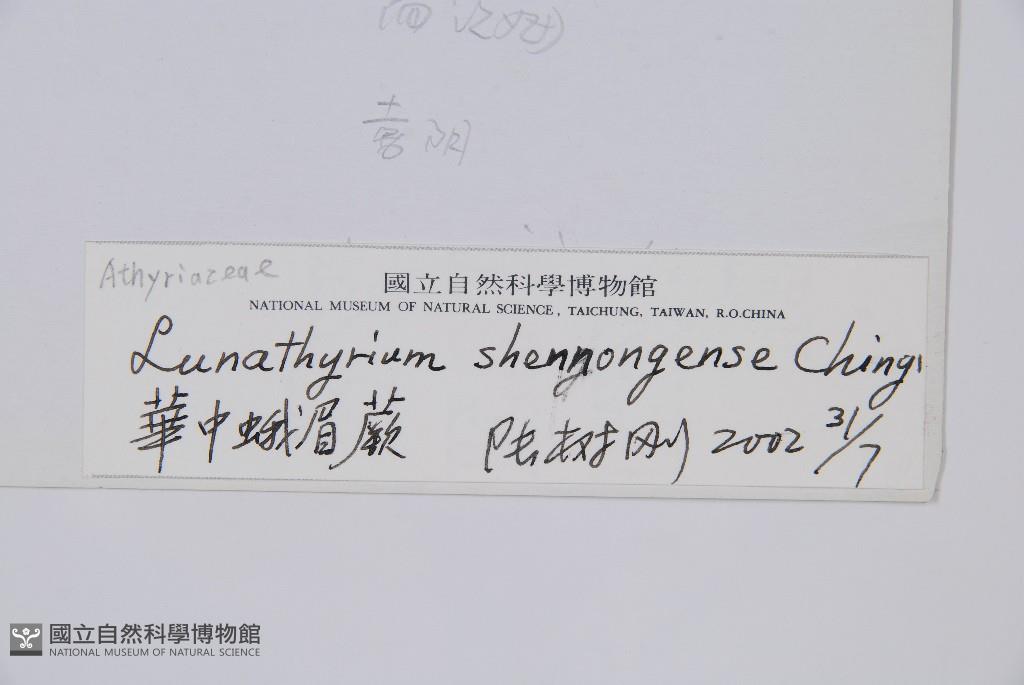 喜阴
Athyriaceae
國立自然科學博物館
NATIONAL MUSEUM OF NATURAL SCIENCE, TAICHUNG, TAIWAN, R.O.CHINA
Lunathyrium shennongense Ching
華中蛾眉蕨 陆树刚 2002 31/7
國立自然科學博物館
NATIONAL MUSEUM OF NATURAL SCIENCE